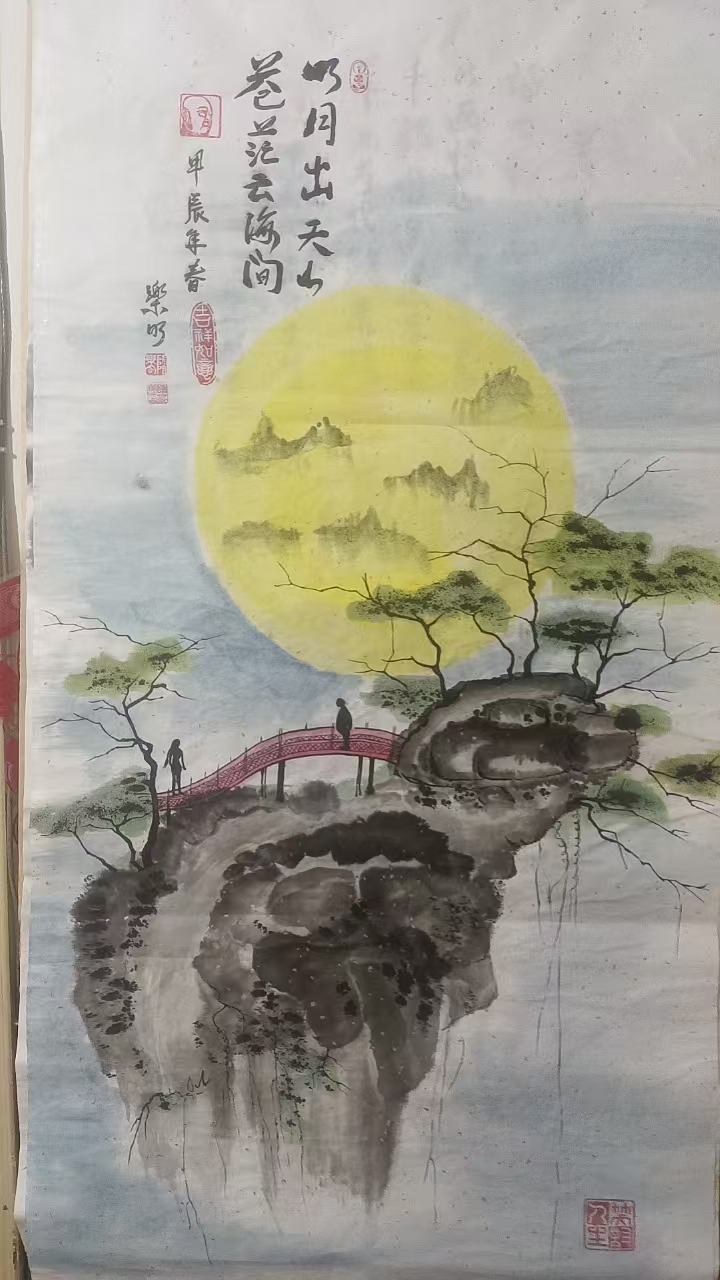 明月出天山
苍茫云海间
甲辰年春
樂明
吉祥如意